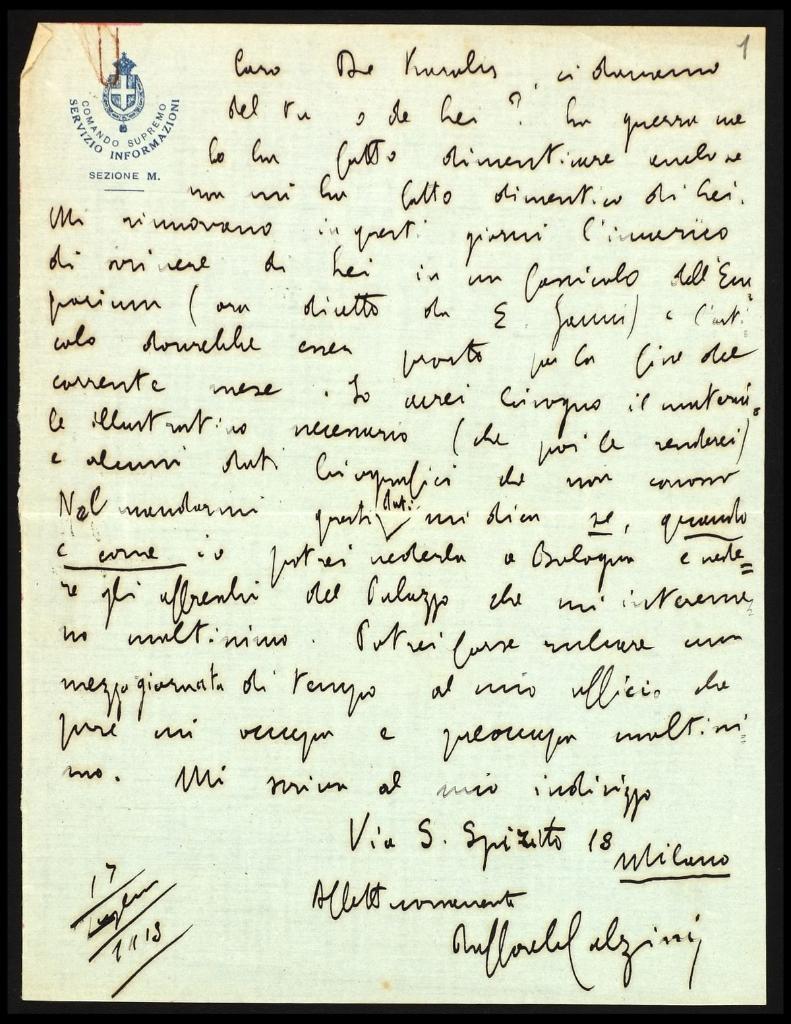 1
COMANDO SUPREMO
SERVIZIO INFORMAZIONI
SEZIONE M.
Caro De Karolis, ci davamo
del tu o de Lei? La guerra me
lo ha fatto dimenticare anche se
non mi ha fatto dimentico di Lei.
Mi rinnovano in questi giorni l'incarico
di scrivere di Lei in un fascicolo dell'Em=
porium (ora diretto da E. Janni) e l'arti
colo dovrebbe esser pronto per la fine del
corrente mese. Io avrei bisogno il materia=
le illustrativo necessario (che poi le renderei)
e alcuni dati biografici che non conosco
Nel mandarmi questi dati mi dica se, quando
e come io potrei vederla a Bologna e vede=
re gli affreschi del Palazzo che mi interessa
no moltissimo. Potrei forse rubare una
mezza giornata di tempo al mio ufficio che
pure mi occupa e preoccupa moltissi=
mo. Mi scriva al mio indirizzo
Via S. Spirito 18
Milano
Affettuosamente
Raffaele Calzini
17
Luglio
1918